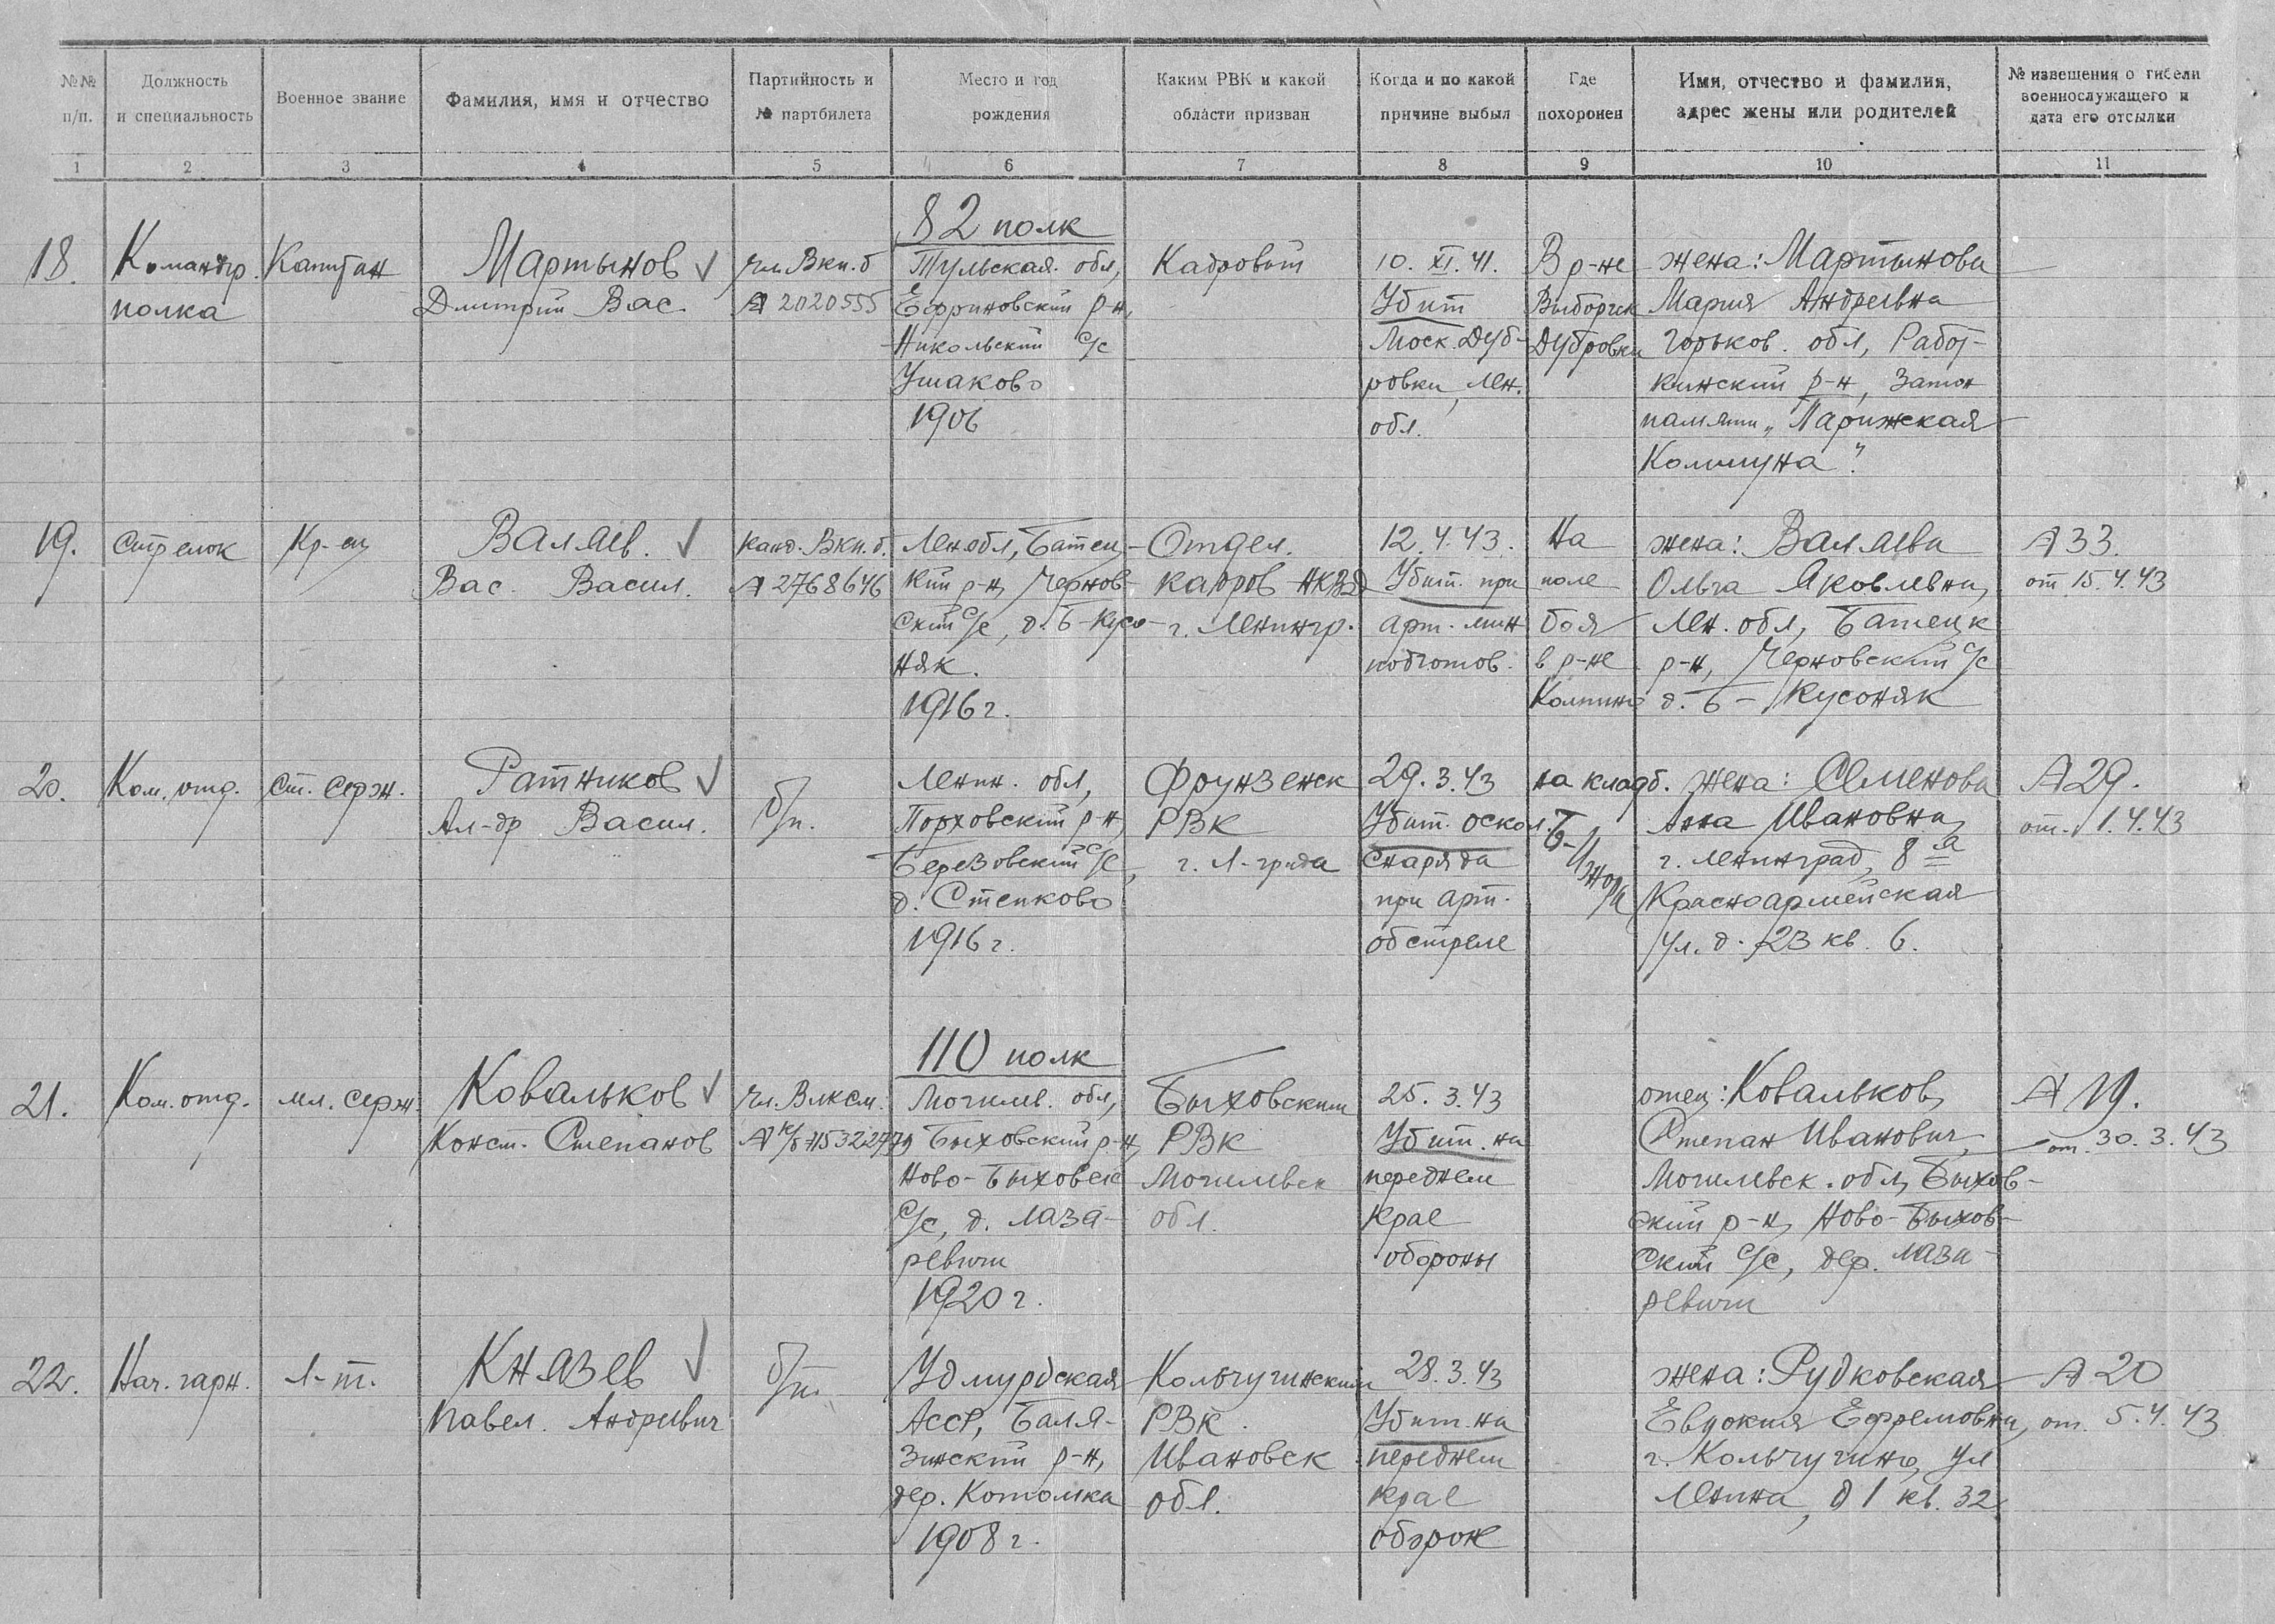 №№ п/п.
Должность и специальность
Военное звание
Фамилия, имя и отчество
Партийность и № партбилета
Место и год рождения
Каким РВК и какой области призван
Когда и по какой причине выбыл
Где похоронен
Имя, отчество и фамилия, адрес жены или родителей
№ извещения о гибели военнослужащего и дата его отсылки
1 2 3 4 5 6 7 8 9 10 11
82 полк
18.
Командир
полка
Капитан
Мартынов
Дмитрий Вас.
чл. Вкп.б
№ 2020555
Тульская обл,
Ефриновский р-н,
Никольский с/с
Ушаково
1906
Кадровый
10. XI. 41.
Убит
Моск. Дуб-
ровки, Лен.
обл.
В р-не
Выборгск
Дубровки
жена: Мартынова
Мария Андреевна
Горьков. обл, Работ-
кинский р-н, Затон
памяти „Парижская
Коммуна".
19.
Стрелок
Кр-ец
Валяев.
Вас. Васил.
канд. Вкп.б.
№ 2768646
Лен обл, Батец-
кий р-н, Чернов-
ский с/с, д. Б-Кусо-
няк.
1916 г.
Отдел.
кадров НКВД
г. Ленингр.
12.4.43.
Убит при
арт. мин
подготов.
На
поле
боя
в р-не
Колпино
жена: Валяева
Ольга Яковлевна,
Лен. обл, Батецк
р-н, Черновский с/с
д. Б-Кусоняк
№ 33.
от 15.4.43
20.
Ком. отд.
Ст. серж.
Ратников
Ал-др Васил.
б/п.
Ленин. обл,
Порховский р-н,
Березовский с/с,
д. Степково
1916 г.
Фрунзенск
РВК
г. Л-града
29.3.43
Убит оскол.
снаряда
при арт.
обстреле
на кладб.
Б-Ижора
жена: Семенова
Анна Ивановна,
г. Ленинград, 8 я
Красноармейская
ул. д. 23 кв. 6.
№ 29.
от. 1.4.43
110 полк
21.
Ком. отд.
мл. серж.
Ковальков
Конст. Степанов
чл. Влксм.
№ к/б 15322779
Могилев. обл,
Быховский р-н,
Ново-Быховск
с/с, д. Лаза-
ревичи
1920 г.
Быховским
РВК
Могилевск
обл.
25.3.43
Убит на
переднем
крае
обороны
отец: Ковальков,
Степан Иванович,
Могилевск. обл, Быхов-
ский р-н, Ново-Быхов-
ский с/с, дер. Лаза-
ревичи
№ 19.
от. 30.3.43
22.
Нач. гарн.
Л-т.
Князев
Павел Андреевич
б/п.
Удмурдская
Асср, Баля-
зинский р-н,
дер. Котомка
1908 г.
Кольчугинским
РВК.
Ивановск
обл.
28.3.43
Убит на
переднем
крае
оборон
жена: Рудковская
Евдокия Ефремовна,
г. Кольчугино, ул
Ленина, д 1 кв. 32
№ 20
от 5.4.43